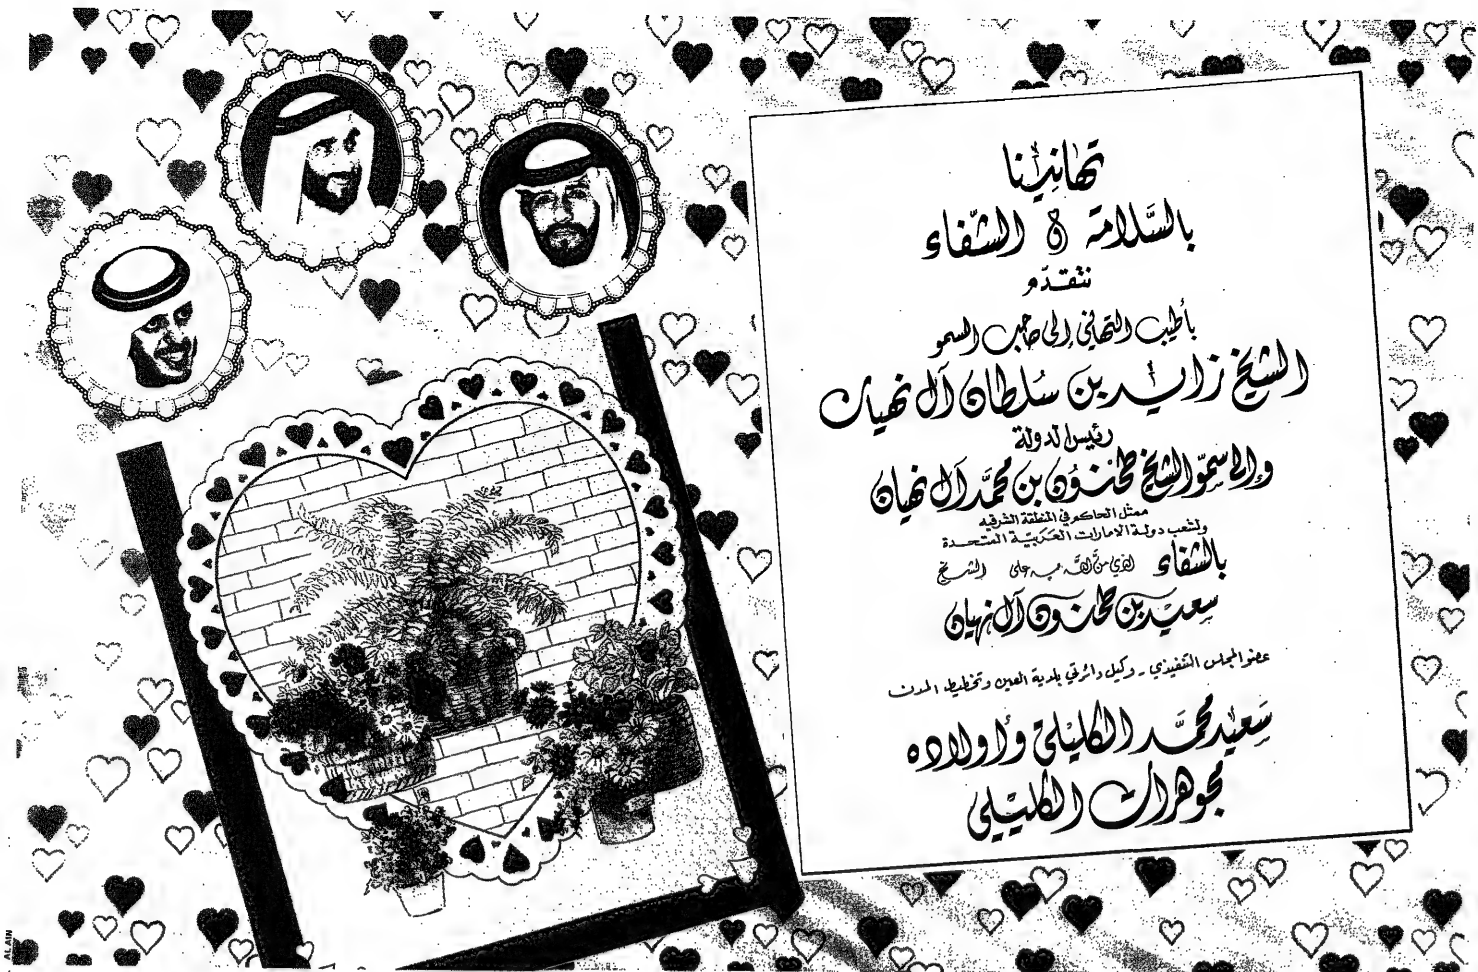 تهانينا
بالسَّلامة و الشّفاء
نتقدّم
بأطيب التهاني إلى صاحب السمو
الشيخ زايد بن سُلطان آل نهيان
رئيس الدولة
وإلى سموّ الشيخ طحنون بن محمَّد آل نهيان
ممثل الحاكم في المنطقة الشرقيه
ولشعب دولة الامارات العَربيّة المتحدة
بالشفاء الذي منَّ الله به على الشيخ
سعيد بن طحنون آل نهيان
عضو المجلس التنفيذي - وكيل دائرتي بلدية العين وتخطيط المدن
سَعيد محمَّد الكليلي وأولاده
مجوهرات الكليلي
ALAIN